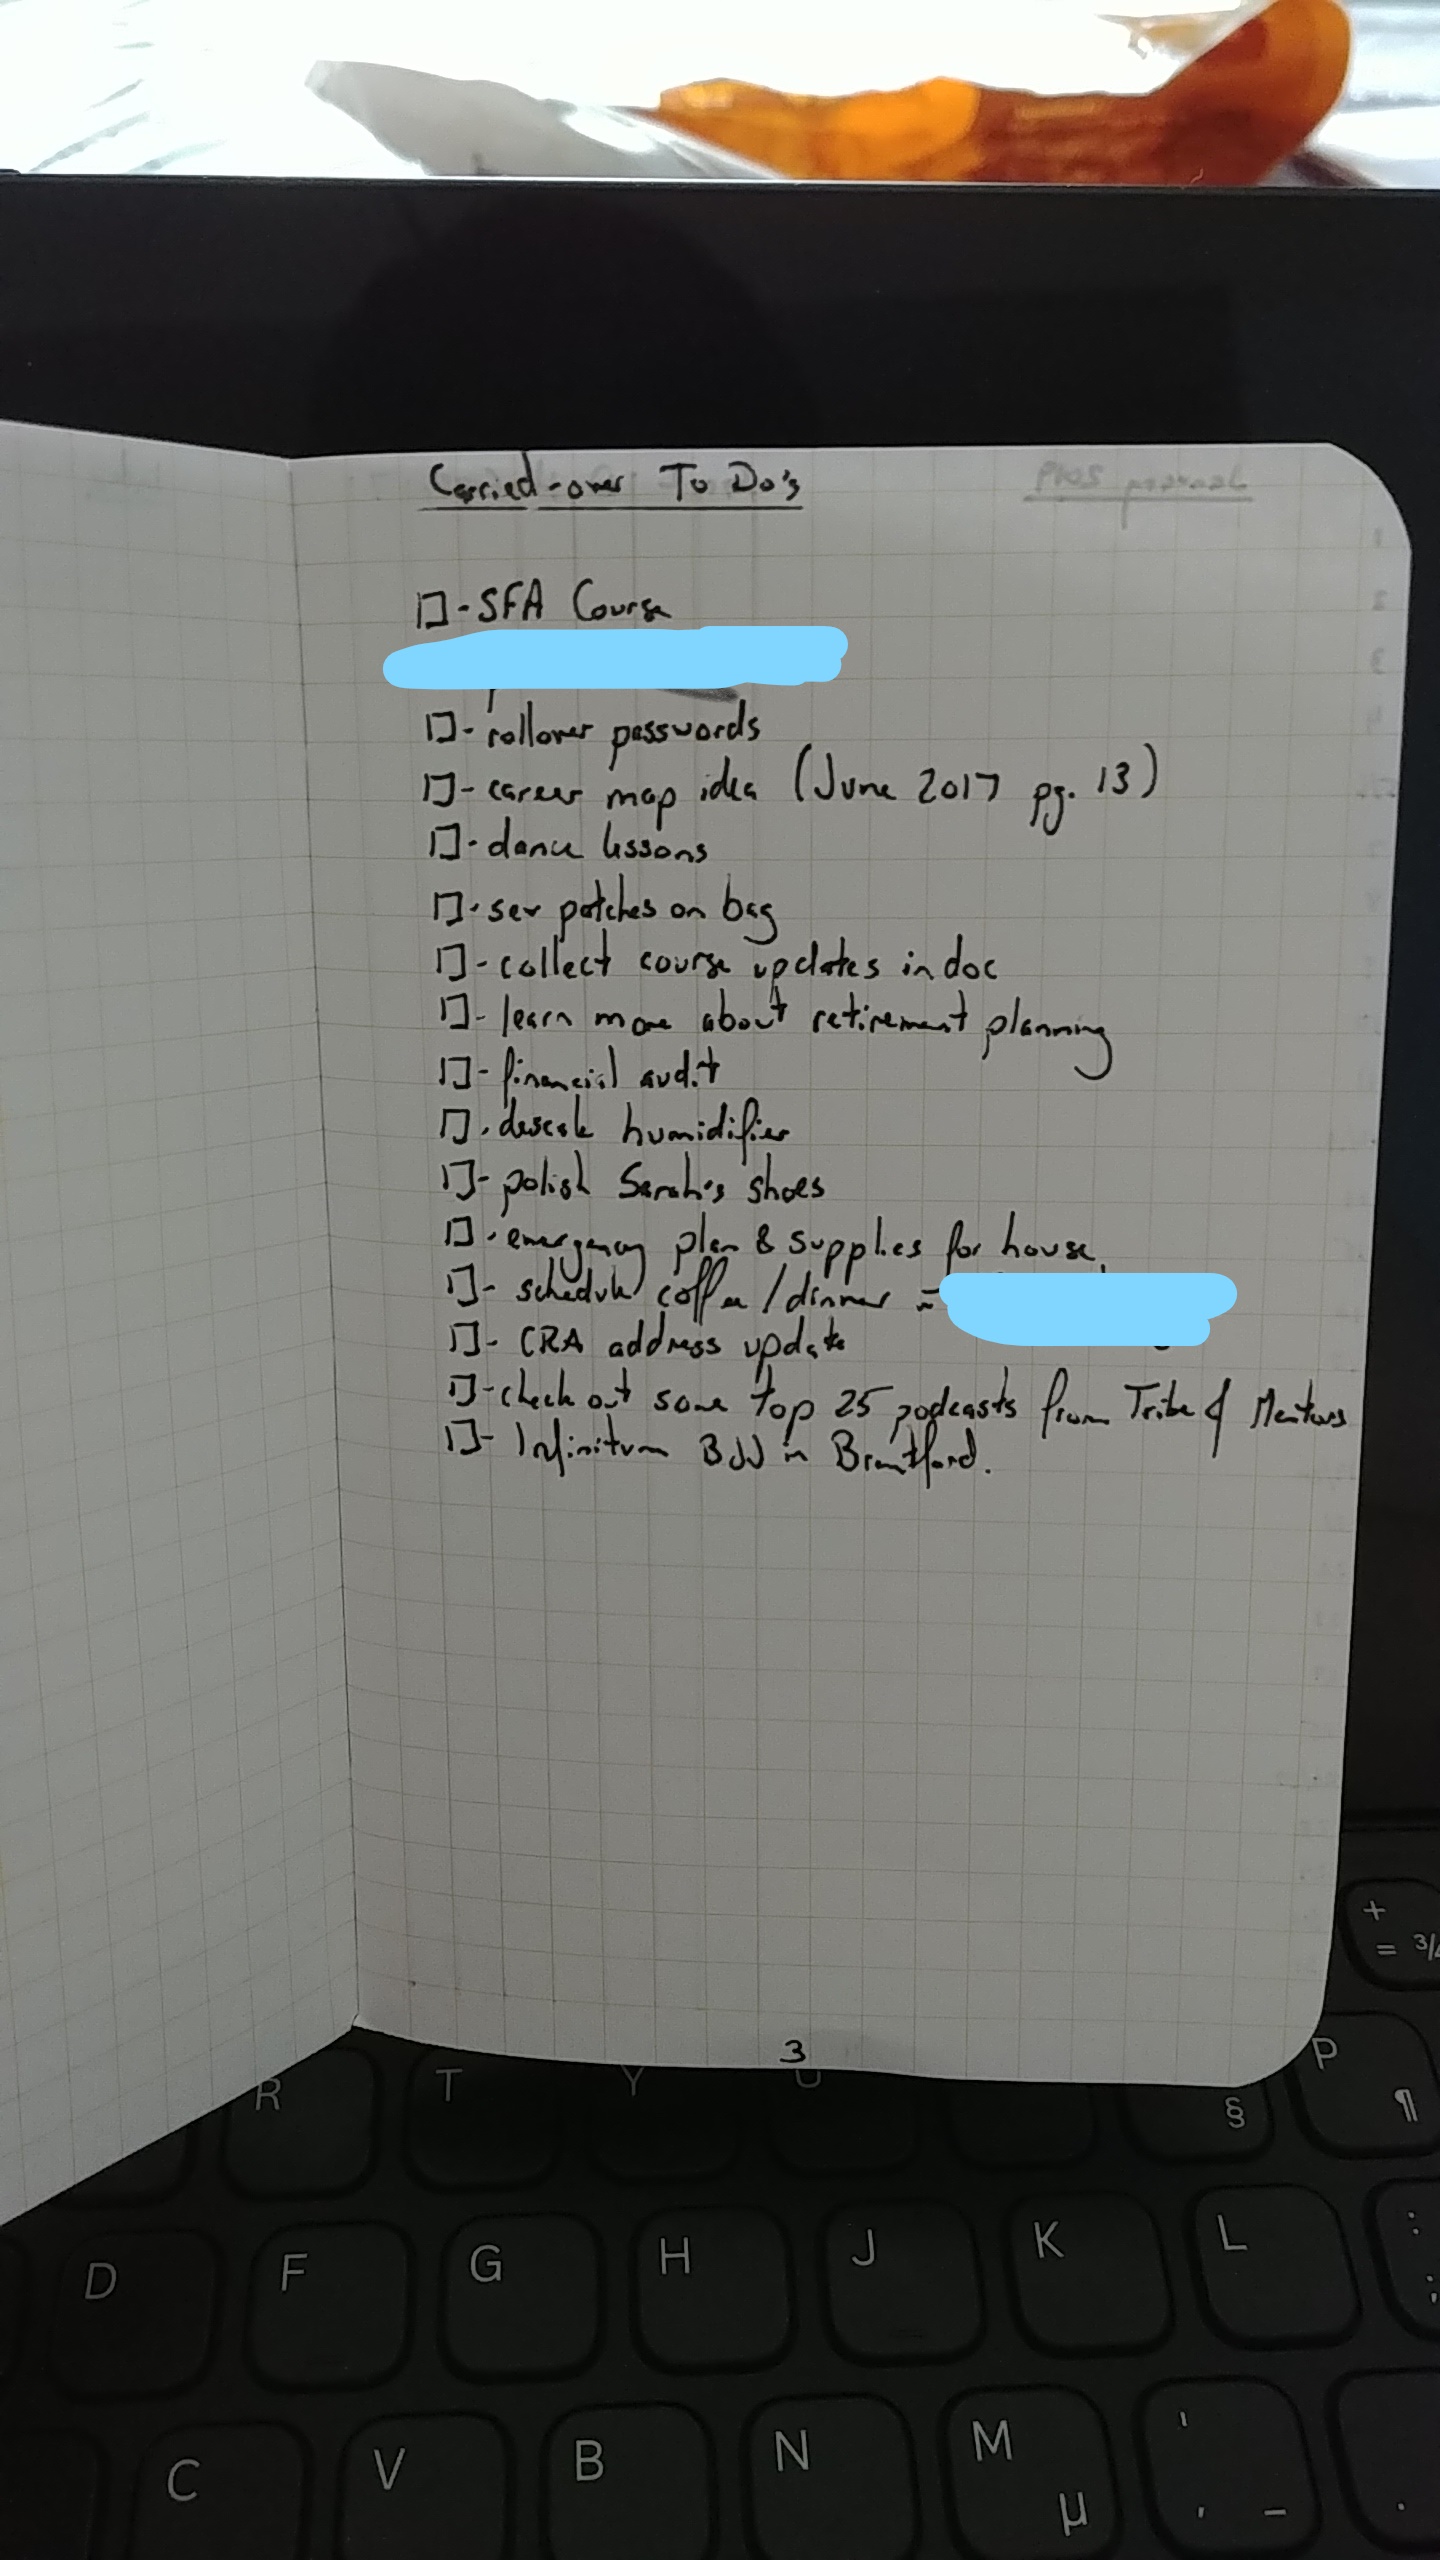 Carried-over To Do's
- SFA Course
- rollover passwords
- career map idea (June 2017 pg. 13)
- dance lessons
- sew patches on bag
- collect course updates in doc
- learn more about retirement planning
- financial audit
- descale humidifier
- polish Sarah's shoes
- emergency plan & supplies for house
- schedule coffee/dinner
- CRA address update
- check out some top 25 podcasts from Tribe of Mentors
- Infinitum BJJ in Brantford.
3
+
= ¾
R T Y U P
§ ¶
D F G H J K L : ;
C V B N M ' , - .
µ